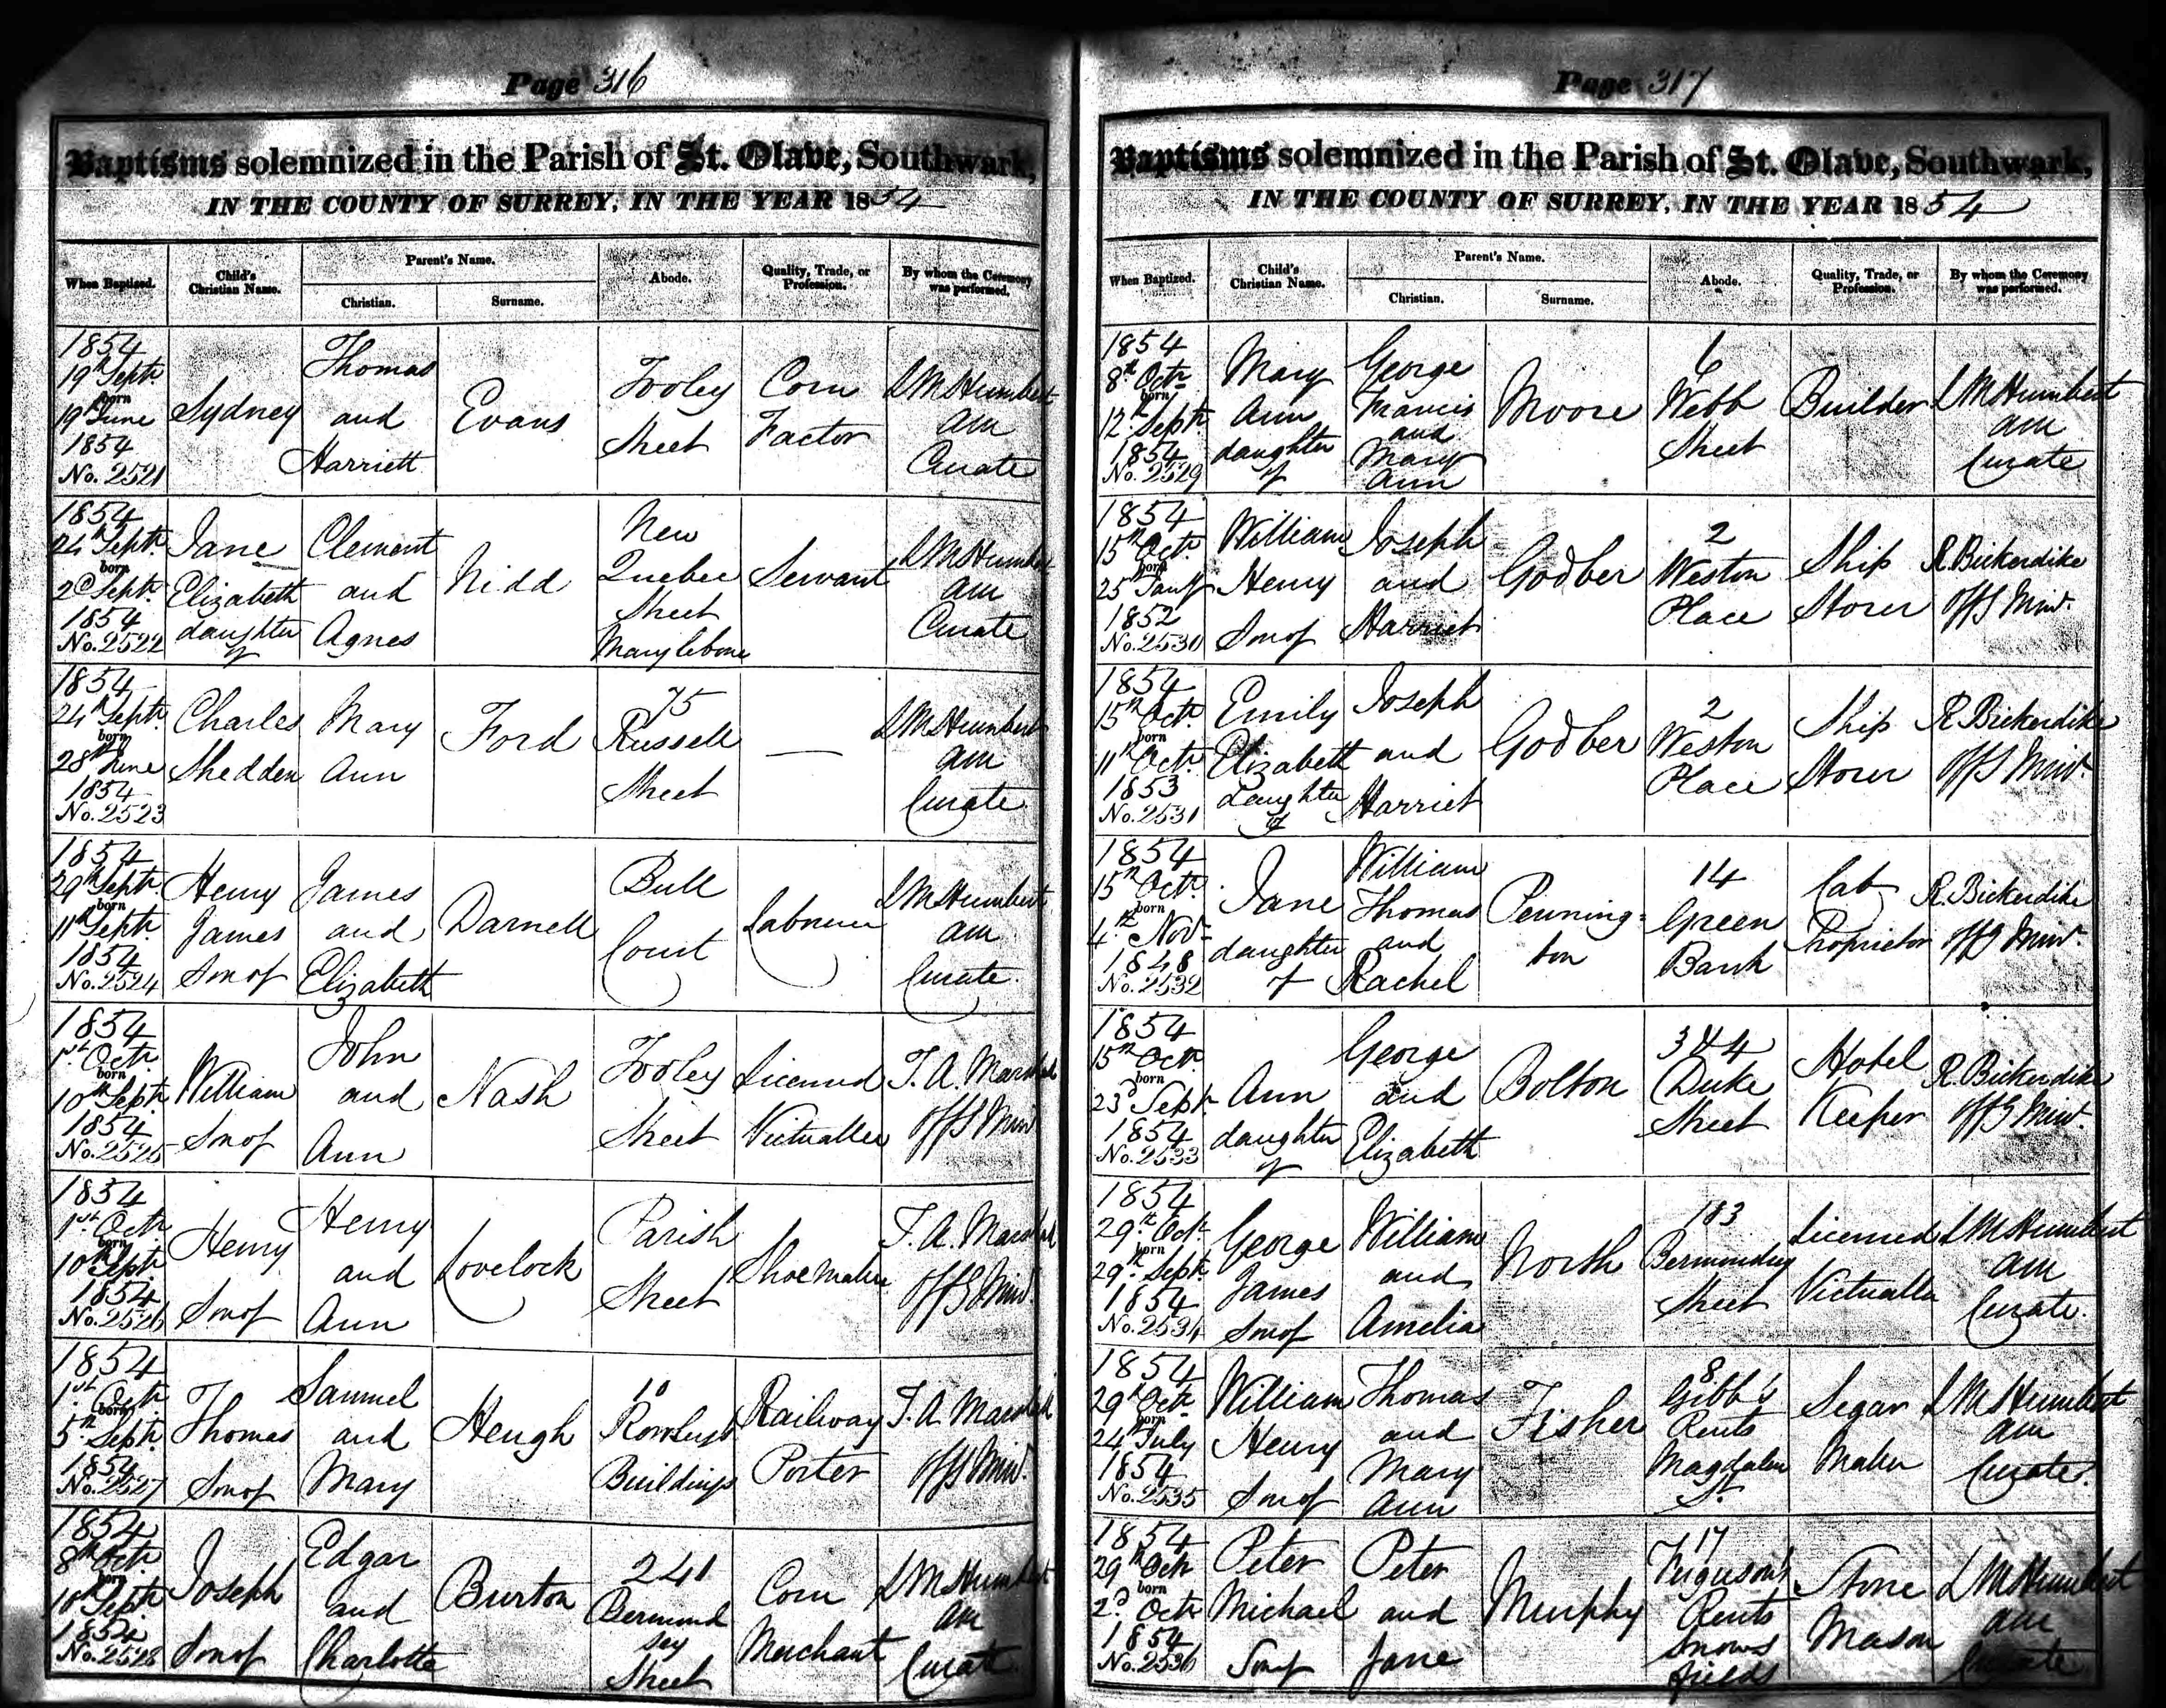 Page 316
Baptisms solemnized in the Parish of St. Olave, Southwark,
IN THE COUNTY OF SURREY, IN THE YEAR 1854
When Baptized.
Child's
Christian Name.
Parent's Name.
Christian.
Surname.
Abode.
Quality, Trade, or
Profession.
By whom the Ceremony
was performed.
1854
19th Septr.
born
19th June
1854
No. 2521
Sydney
Thomas
and
Harriett
Evans
Tooley
Street
Corn
Factor
L M Humbert
AM
Curate
1854
24th Septr.
born
2d Septr.
1854
No. 2522
Jane
Elizabeth
daughter
of
Clement
and
Agnes
Nidd
New
Quebec
Street
Marylebone
Servant
L M Humbert
AM
Curate
1854
24th Septr.
born
28th June
1854
No. 2523
Charles
Shedden
Mary
Ann
Ford
75
Russell
Street
—
L M Humbert
AM
Curate
1854
29th Septr.
born
11th Septr.
1854
No. 2524
Henry
James
Son of
James
and
Elizabeth
Darnell
Bull
Court
Labourer
L M Humbert
AM
Curate
1854
1st Octr.
born
10th Septr.
1854
No. 2525
William
Son of
John
and
Ann
Nash
Tooley
Street
Licensed
Victualler
T. A. Marshall
Offg Minr.
1854
1st Octr.
born
10th Septr.
1854
No. 2526
Henry
Son of
Henry
and
Ann
Lovelock
Parish
Street
Shoemaker
T. A. Marshall
Offg Minr.
1854
1st Octr.
born
5th Septr.
1854
No. 2527
Thomas
Son of
Samuel
and
Mary
Heugh
10
Buildings
Railway
Porter
T. A. Marshall
Offg Minr.
1854
8th Octr.
born
10th Septr.
1854
No. 2528
Joseph
Son of
Edgar
and
Charlotte
Burton
241
Bermond
sey
Street
Corn
Merchant
L M Humbert
AM
Curate
Page 317
Baptisms solemnized in the Parish of St. Olave, Southwark,
IN THE COUNTY OF SURREY, IN THE YEAR 1854
When Baptized.
Child's
Christian Name.
Parent's Name.
Christian.
Surname.
Abode.
Quality, Trade, or
Profession.
By whom the Ceremony
was performed.
1854
8th Octr.
born
12th Septr.
1854
No. 2529
Mary
Ann
daughter
of
George
Francis
and
Mary
Ann
Moore
6
Webb
Street
Builder
L M Humbert
AM
Curate
1854
15th Octr.
born
25th Jany
1852
No. 2530
William
Henry
Son of
Joseph
and
Harriet
Godber
2
Weston
Place
Ship
Storer
R. Bickerdike
Offg Minr.
1854
15th Octr.
born
11th Octr.
1853
No. 2531
Emily
Elizabeth
daughter
of
Joseph
and
Harriet
Godber
2
Weston
Place
Ship
Storer
R. Bickerdike
Offg Minr.
1854
15th Octr.
born
4th Novr.
1848
No. 2532
Jane
daughter
of
William
Thomas
and
Rachel
Penning=
ton
14
Green
Bank
Cab
Proprietor
R. Bickerdike
Offg Minr.
1854
15th Octr.
born
23d Septr.
1854
No. 2533
Ann
daughter
of
George
and
Elizabeth
Bolton
3 & 4
Duke
Street
Hotel
Keeper
R. Bickerdike
Offg Minr.
1854
29th Octr.
born
29th Septr.
1854
No. 2534
George
James
Son of
William
and
Amelia
North
183
Bermondsey
Street
Licensed
Victualler
L M Humbert
AM
Curate
1854
29th Octr.
born
24th July
1854
No. 2535
William
Henry
Son of
Thomas
and
Mary
Ann
Fisher
8
Gibb's
Rents
Magdalen
St.
Segar
Maker
L M Humbert
AM
Curate
1854
29th Octr.
born
2d Octr.
1854
No. 2536
Peter
Michael
Son of
Peter
and
Jane
Murphy
17
Ferguson's
Rents
Snows
fields
Stone
Mason
L M Humbert
AM
Curate